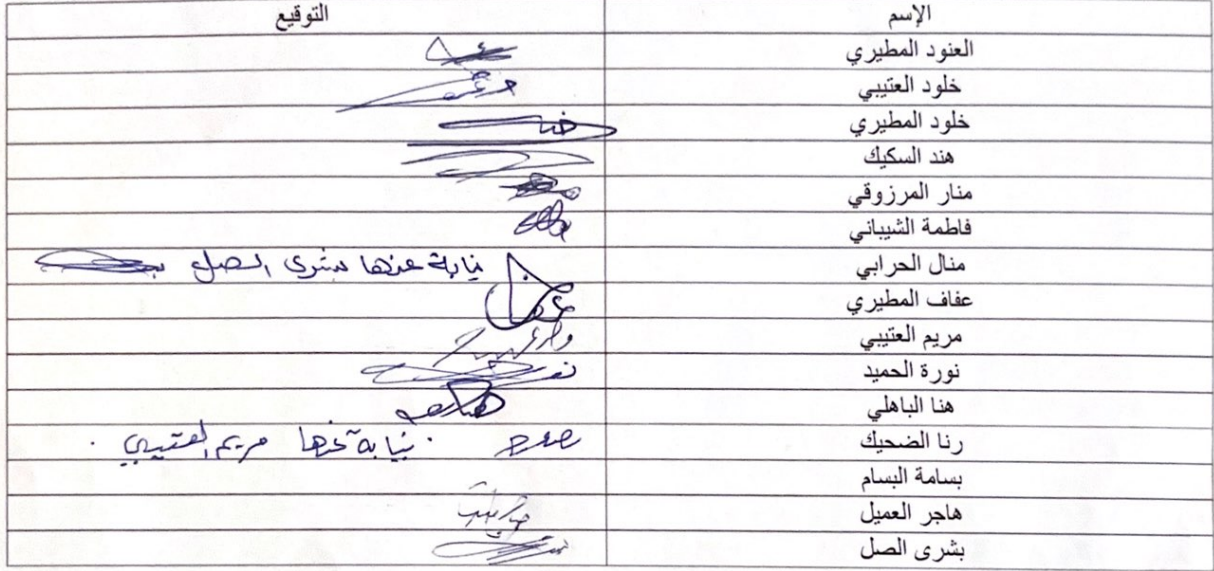 الإسم التوقيع
العنود المطيري
خلود العتيبي
خلود المطيري
هند السكيك
منار المرزوقي
فاطمة الشيباني
منال الحرابي نيابة عنها بشرى الصل
عفاف المطيري
مريم العتيبي
نورة الحميد نوره
هنا الباهلي
رنا الضحيك . نيابة عنها مريم العتيبي .
بسامة البسام
هاجر العميل
بشرى الصل